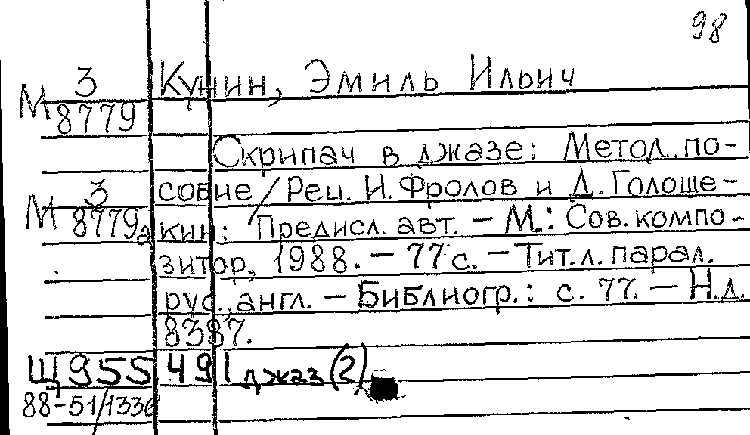 98
М 3/8779 Кунин, Эмиль Ильич
Скрипач в джазе: Метод. по-
М 3/8779а собие / Рец. И. Фролов и Д. Голоще-
кин; Предисл. авт. – М.: Сов. компо-
зитор, 1988. – 77 с. – Тит. л. парал.
рус., англ. – Библиогр.: с. 77. – Н.д.
8387.
Щ955.491 джаз (2)
88-51/1336